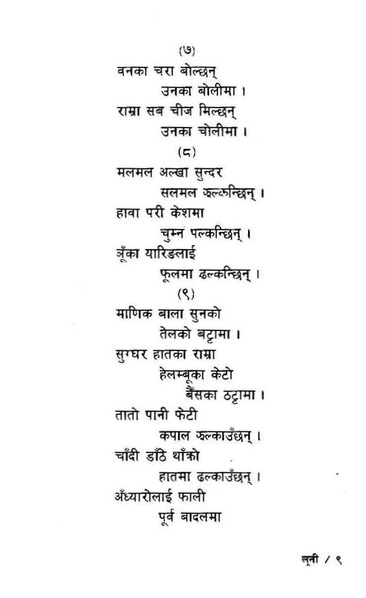 (७)
वनका चरा बोल्छन्
उनका बोलीमा ।
राम्रा सब चीज मिल्छन्
उनका चोलीमा ।
(८)
मलमल अल्खा सुन्दर
सलमल झल्कन्छिन् ।
हावा परी केशमा
चुम्न पल्कन्छिन् ।
ञूँका यारिङलाई
फूलमा ढल्कन्छिन् ।
(९)
माणिक बाला सुनको
तेलको बट्टामा ।
सुग्घर हातका राम्रा
हेलम्बूका केटो
बैंसका ठट्टामा ।
तातो पानी फेटी
कपाल झल्काउँछन् ।
चाँदी डाँठे थाँक्रो
हातमा ढल्काउँछन् ।
अँध्यारोलाई फाली
पूर्व बादलमा
लूनी / ९